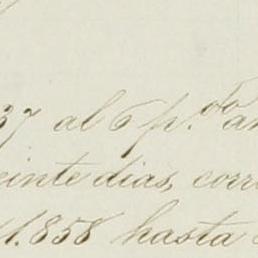 37 al 6 p.r do an
einte dias, corr
1.858 hasta